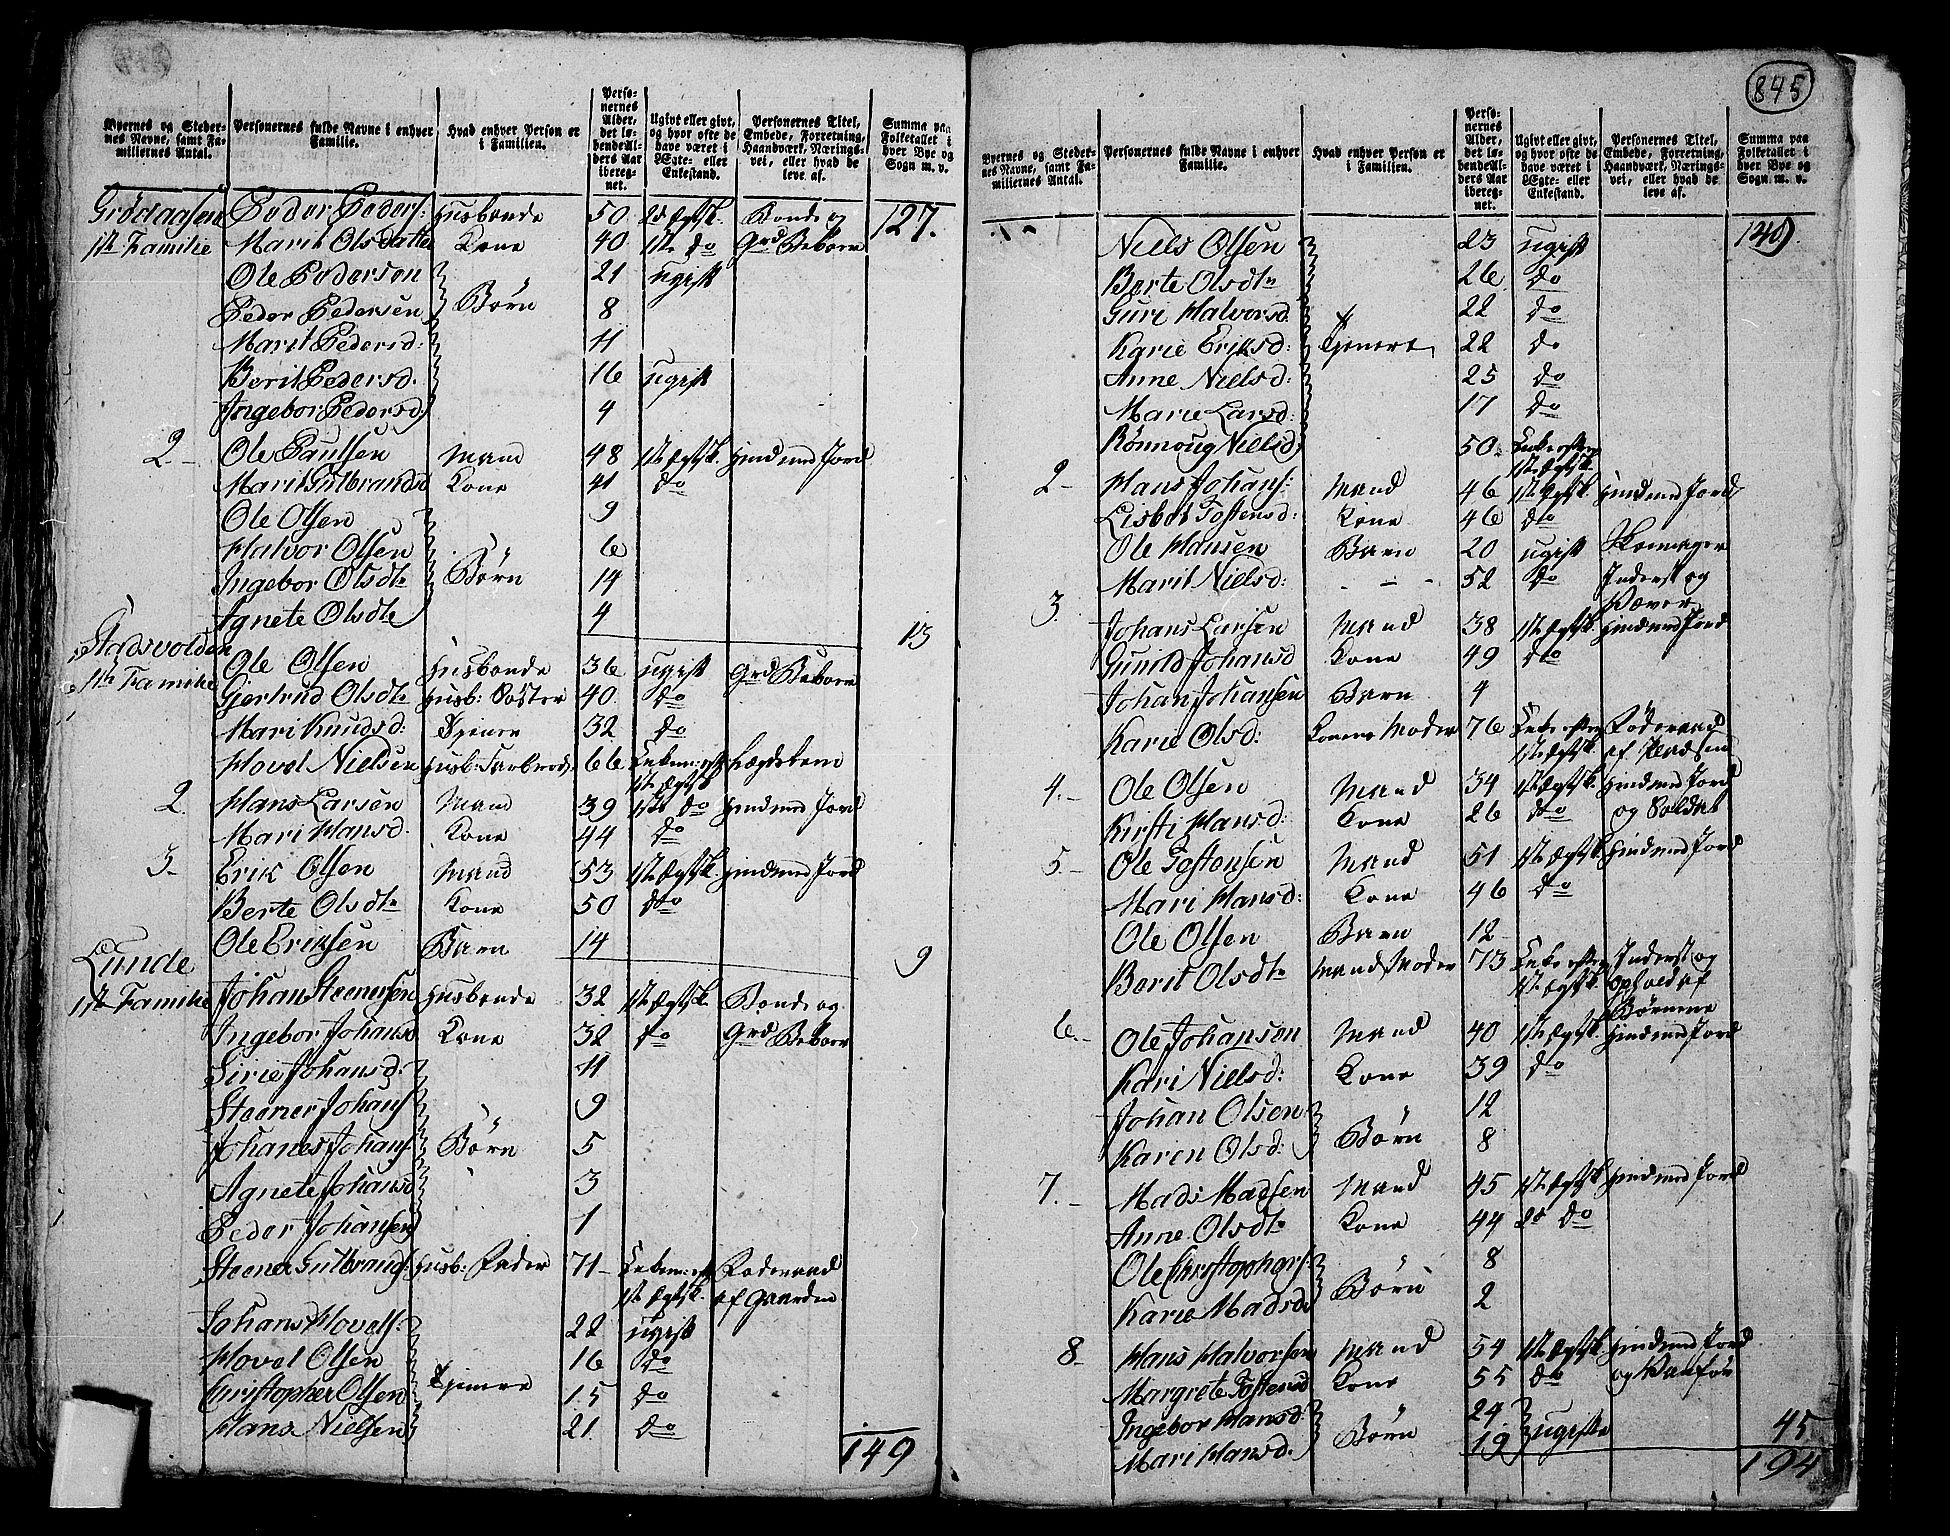 Byernes og Steder-
nes Navne, samt Fa-
miliernes Antal.
Personernes fulde Navne i enhver
Familie.
Hvad enhver Person er
i Familien.
Perso-
nernes
Alder,
det lø-
bendeAl-
ders Aar
ibereg-
net.
Ugivt eller givt,
og hvor ofte de
have været i
Ægte- eller
Enkestand.
Personernes Titel,
Embede, Forretning,
Haandværk, Nærings-
vei, eller hvad de
leve af.
Summa paa
Folketallet i
hver Bye og
Sogn m. v.
Peder Peders: Husbonde 50 2d Ægtsk. Bonde og 127.
1ste Familie Marit Olsdatte Kone 40 1ste do Grd Beboer
Ole Pedersen 21 ugift
Peder Pedersen Börn 8
Marit Pedersd: 11
Berit Pedersd. 16 ugift
Ingebor Pedersd 4
2 Ole Paulsen Mand 48 1ste Ægtsk. Huusmd med Jord
Marit Gulbrandsd Kone 41 do
Ole Olsen 9
Halvor Olsen 6
Ingebor Olsdtr Börn 14
Agnete Olsdtr 4
Stadsvolden 13
1ste Familie Ole Olsen Husbonde 36 ugift Grd Beboer
Gjertrud Olsdtr Husb: Söster 40 do
Mari Knudsd: Tjener 32 do
Hovel Nielsen Husb: Farbrod. 66 Enkem: eft
1ste Ægtsk
2. Hans Larsen Mand 39 1ste do Huusmd med Jord
Mari Hansd. Kone 44 do
3 Erik Olsen Mand 53 1ste Ægtsk. Huusmd med Jord
Berte Olsdtr Kone 50 do
Ole Eriksen Barn 14
Lunde 9
1ste Familie Johan Steenersen Husbonde 32 1ste Ægtsk. Bonde og
Ingebor Johansd Kone 32 do Grd Beboer
Sirie Johansd: 11
Steener Johans 9
Johanes Johans Börn 5
Agnete Johansd 3
Peder Johansen 1
Steener Gulbrands: Husb: Fader 71 Enkem: eft Föderaad
1ste Ægtsk. af Gaarden
Johans Hovels: 22 ugift
Hovel Olsen 16 do
Christopher Olsen Tjenere 15 do
Hans Nielsen 21 do
149
845
Byernes og Steder-
nes Navne, samt Fa-
miliernes Antal.
Personernes fulde Navne i enhver
Familie.
Hvad enhver Person er
i Familien.
Perso-
nernes
Alder,
det lø-
bendeAl-
ders Aar
ibereg-
net.
Ugivt eller givt,
og hvor ofte de
have været i
Ægte- eller
Enkestand.
Personernes Titel,
Embede, Forretning,
Haandværk, Nærings-
vei, eller hvad de
leve af.
Summa paa
Folketallet i
hver Bye og
Sogn m. v.
Niels Olsen 23 ugift 149
Berte Olsdtr 26 do
Guri Halvorsd 22 do
Karie Eriksd: Tjenere 22 do
Anne Nielsd: 25 do
Marie Larsd: 17 do
Rönnoug Nielsd 50 Enke efter
1ste Ægtsk.
2 Hans Johans: Mand 46 1ste Ægtsk. Huusmd med Jord
Lisbet Tostensd: Kone 46 do
Ole Hansen Barn 20 ugift Skomager
Marit Nielsd: - - - 52 do Inderst og
Væver
3. Johans Larsen Mand 38 1ste Ægtsk. Huusmd med Jord
Gunild Johansd Kone 49 do
Johan Johansen Barn 4
Karie Olsd: Konens Moder 76 Enke efter Föderaad
1ste Ægtsk. af Pladsen
4. Ole Olsen Mand 34 1ste Ægtsk. Huusmd med Jord
Kirsti Hansd: Kone 26 do og Soldat
5 Ole Tostensen Mand 51 1ste Ægtsk. Huusmd med Jord
Mari Hansd: Kone 46 do
Ole Olsen Barn 12
Berit Olsdtr Mands Moder 73 Enke efter Inderst og
1ste Ægtsk. ophold af
Börnene
6 Ole Johansen Mand 40 1ste Ægtsk. Huusmd med Jord
Kari Nielsd: Kone 39 do
Johan Olsen 12
Karen Olsd: Börn 8
7. Mads Madsen Mand 45 1ste Ægtsk. Huusmd med Jord
Anne Olsdtr Kone 44 2d do
Ole Christophers: 8
Karie Madsd Börn 2
8 Hans Halvorsen Mand 54 1ste Ægtsk. Huusmd med Jord
Margrete Tostensd Kone 55 do
Ingebor Hansd: 24
Mari Hansd. Börn 19 ugifte 45
194